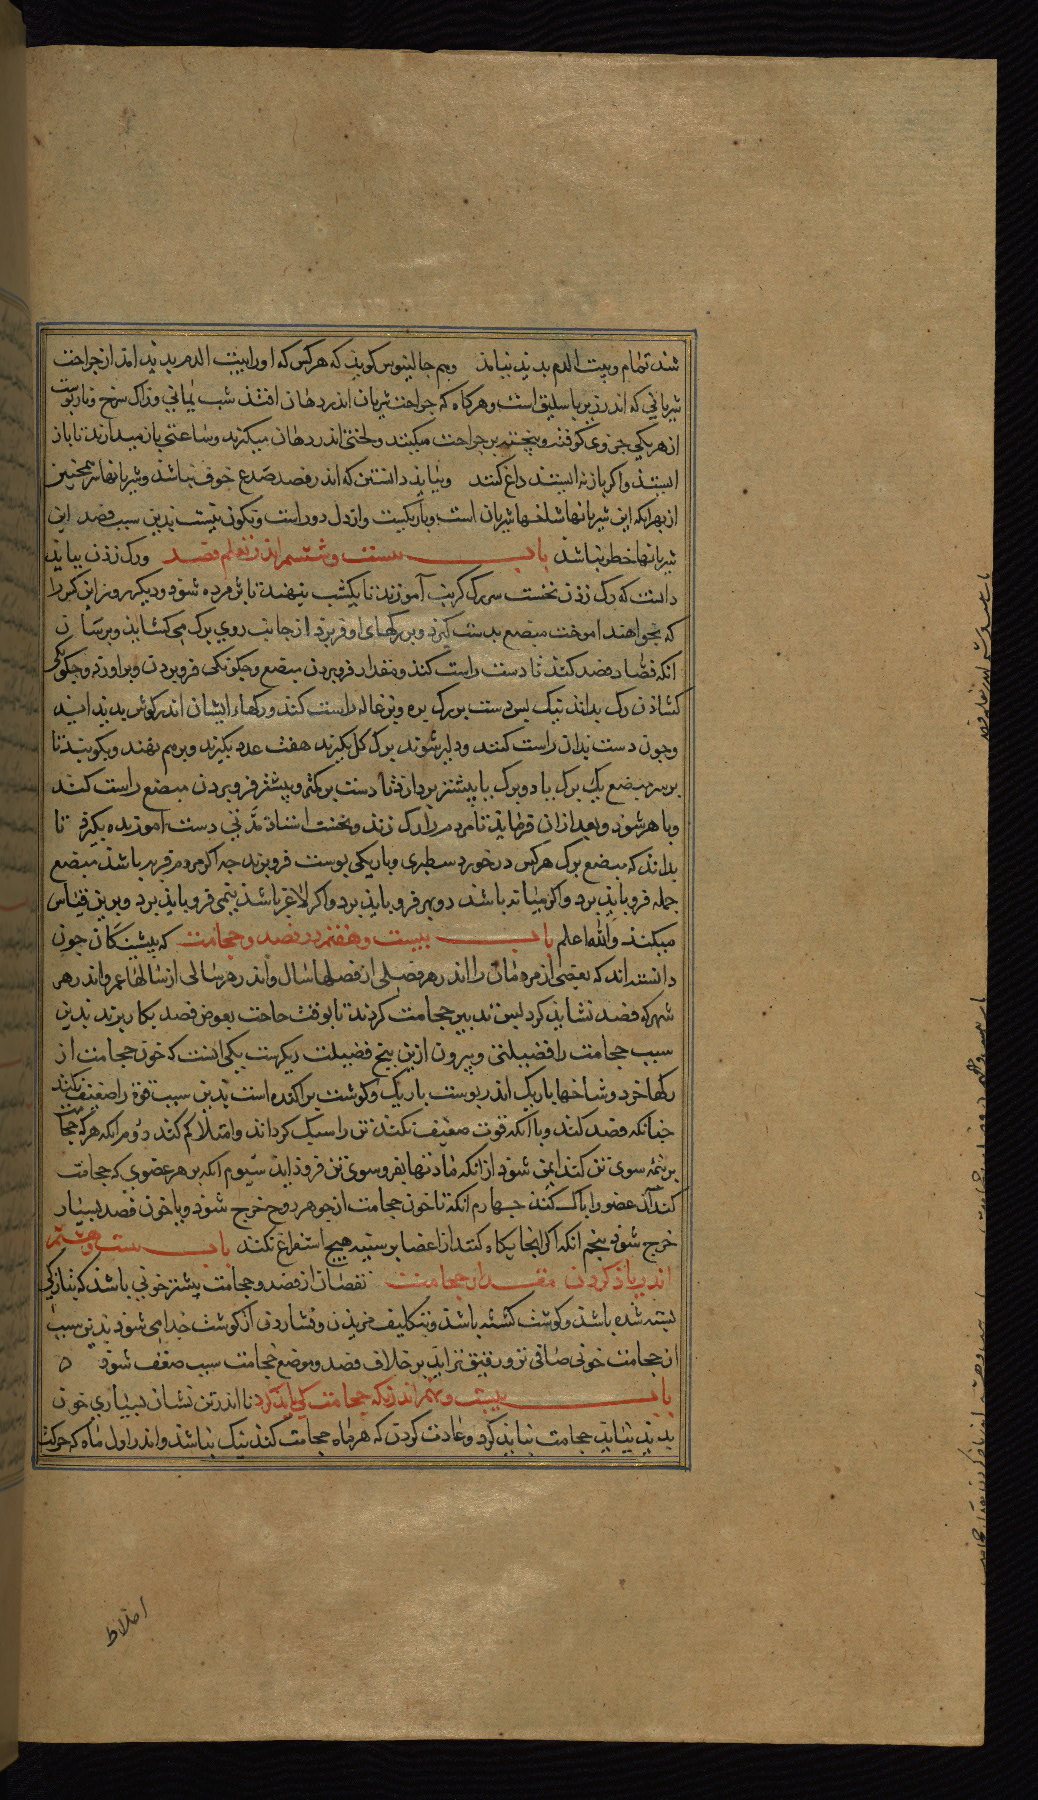 شد تمام وبیت الدم بدید نیامد وهم جالینوس کوید که هرکس که اورا بیت الدم بدید امد از جراحت
شریانی که اندر زیر باسلیق است وهرکاه که جراحت شریان اندر دهان افتد شب یمانی وزاک سرخ ونار پوست
از هر یکی جزوی کوفته وپخته بر جراحت میکنند ولختی اندر دهان میکیرند وساعتی باز میدارند تا باز
ایستد واکر باز نه ایستد داغ کنند وبباید دانستن که اندر فصد صدغ خوف نباشد وشریانها همچنین
از بهر انکه این شریانها شاخهای شریان است وباریکست واز دل دور است ونکون نیست بدین سبب فصد این
شریانها خطر نباشد باب بیست وششم اندر تعلم فصد ورک زدن بباید
دانست که رک زدن نخست سر برک کرنب آموزند تا یکشب بنهند تا پژمرده شود ودیکر روز این کس را
که بخواهند اموخت مبضع بدست کیرد وبر رکهای او فرو برد از جانب روی برک می کشاید وبرسان
انکه فصاد فصد کند تا دست راست کند ومقدار فرو بردن مبضع وچکونکی فرو بردن وبر اوردن وچکونکی
کشادن رک بداند نیک پس دست بر برک بره وبزغاله راست کند ورکها ایشان اندر کوش بدید اید
وچون دست بدان راست کنند ودلیر شوند برک کل بکیرند هفت عدد بکیرند وبرهم نهند وبکویند تا
بر سر مبضع یک برک یا دو برک یا بیشتر بردارد تا دست بر کمتر وبیشتر فرو بردن مبضع راست کند
وماهر شود وبعد ازان فرماید تا مردم را رک زند ونخست استاد تدنی دست اموزنده بکیرد تا
بداند که مبضع برک هرکس در خورد سطبری وباریکی پوست فرو برند چه اکر مردم فربه باشد مبضع
جمله فرو باید برد واکر میانه باشد دو بهر فرو باید برد واکر لاغر باشد نیمی فرو باید برد وبرین قیاس
میکند والله اعلم باب بیست وهفتم در فصد وحجامت که پیشینکان چون
دانسته اند که بعضی از مردمان را اندر هر فصلی از فصلها سال واندر هر سالی از سالها عمر واندر هر
شهر که فصد نشاید کرد پس تدبیر حجامت کردند تا بوقت حاجت بعوض فصد بکار برند بدین
سبب حجامت را فضیلتی وبیرون ازین پنج فضیلت دیکرست یکی انست که خون حجامت از
رکها خرد وشاخها باریک اندر پوست باریک وکوشت پراکنده است بدین سبب قوة را ضعیف نکند
چنانکه فصد کند وبا انکه قوت ضعیف نکند تن را سبک کرداند وامتلا کم کند دوم انکه هرکه حجامت
بر نیمه سوی تن کند ایمن شود از انکه مادتها بفرو سوی تن فرود اید سیوم انکه بر هر عضوی که حجامت
کند آن عضو را پاک کند چهارم انکه تا خون حجامت از جوهر روح خرج شود وبا خون فصد بسیار
خرج شود پنجم انکه اکر انجا یکاه کنند از اعضا برسینه هیچ استفراغ نکند باب بیست وهشتم
اندر یاد کردن مقدار حجامت نقصان از فصد وحجامت بیشتر خونی باشد که بتازکی
بسته شده باشد وکوشت کشته باشد وبتکلیف مزیدن وفشاردن از کوشت جدا می شود بدین سبب
از حجامت خونی صافی تر ورقیق تر اید بر خلاف فصد وموضع حجامت سبب ضعف شود ه
باب بیست ونهم اندر انکه حجامت کی باید کرد تا اندر تن نشان بسیاری خون
بدید نیاید حجامت نباید کرد وعادت کردن که هر ماه حجامت کنند نیک نباشد واندر اول ماه که حرکت
اخلاط